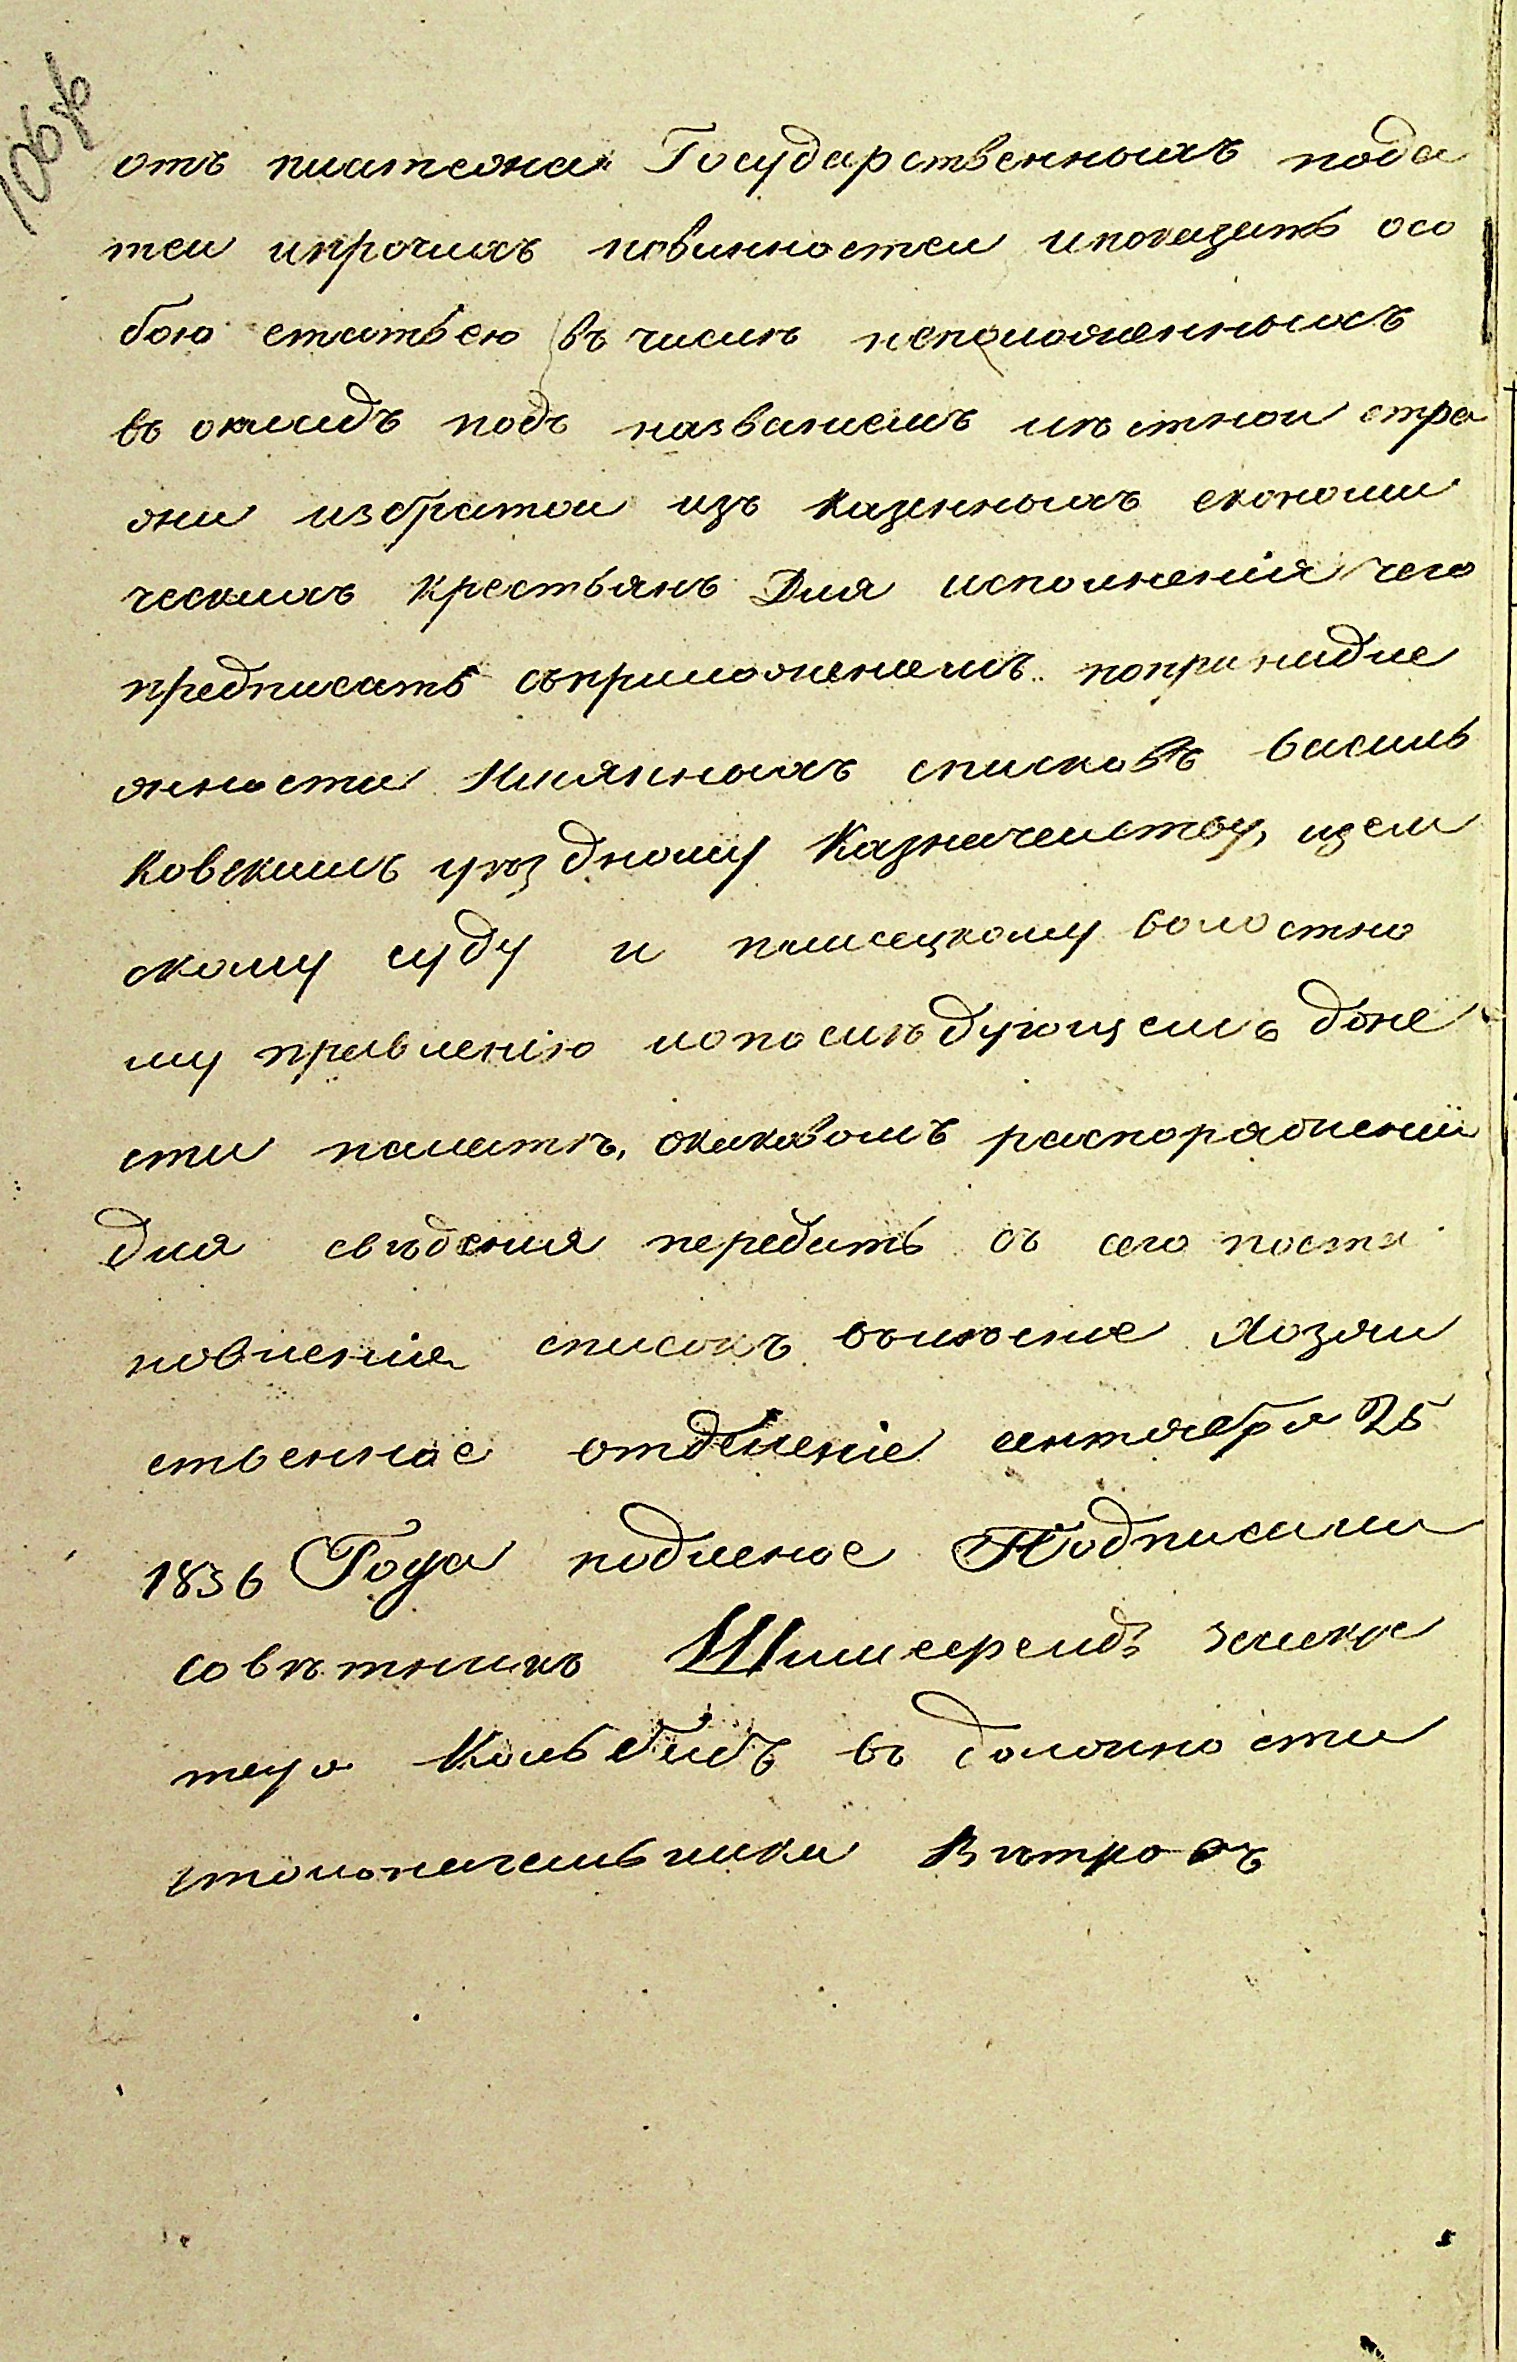 106 об
отъ платежа Государственныхъ пода
тей ипрочихъ повинностей ипоказать осо
бою статьею въ числѣ неположенныхъ
въ окладъ подъ названіемъ мѣстной стра
жи избратой изъ казенныхъ економи
ческихъ крестьянъ Для исполненія чего
предписать съприложеніемъ попринадле
жности Имянныхъ списковъ василь
ковскимъ уѣздному Казначейству, изем
скому суду и плисецкому волостно
му правленію ипопослѣдующемъ доне
сти палатѣ, окаковомъ распоряженіи
для свѣденія передать съ сего поста
новленія списокъ въхозяй
ственное отдѣленіе сентября 25
1836 Года подленое Подписали
совѣтникъ
въ должности
столоначальника Вѣтровъ